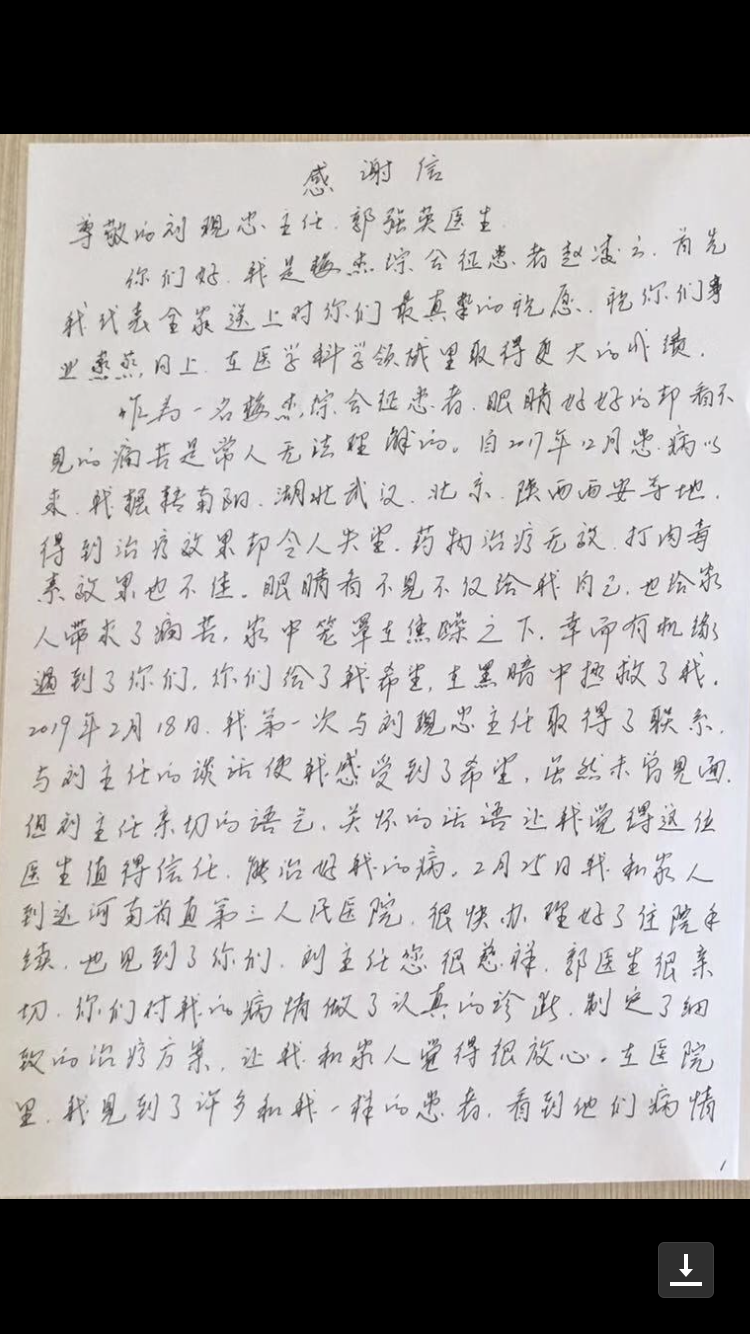 感谢信
尊敬的刘现忠主任、郭强英医生:
你们好,我是梅杰综合征患者赵凌云,首先
我代表全家送上对你们最真挚的祝愿,祝你们事
业蒸蒸日上,在医学科学领域里取得更大的成绩。
作为一名梅杰综合征患者,眼睛好好的却看不
见的痛苦是常人无法理解的。自2017年12月患病以
来,我辗转南阳、湖北武汉、北京、陕西西安等地,
得到治疗效果却令人失望,药物治疗无效,打肉毒
素效果也不佳。眼睛看不见不仅给我自己,也给家
人带来了痛苦,家中笼罩在焦躁之下,幸而有机缘
遇到了你们,你们给了我希望,在黑暗中拯救了我。
2019年2月18日,我第一次与刘现忠主任取得了联系,
与刘主任的谈话使我感受到了希望,虽然未曾见面,
但刘主任亲切的语气,关怀的话语让我觉得这位
医生值得信任,能治好我的病。2月25日我和家人
到达河南省直第三人民医院,很快办理好了住院手
续,也见到了你们,刘主任您很慈祥,郭医生很亲
切,你们对我的病情做了认真的诊断,制定了细
致的治疗方案,让我和家人觉得很放心。在医院
里,我见到了许多和我一样的患者,看到他们病情
1